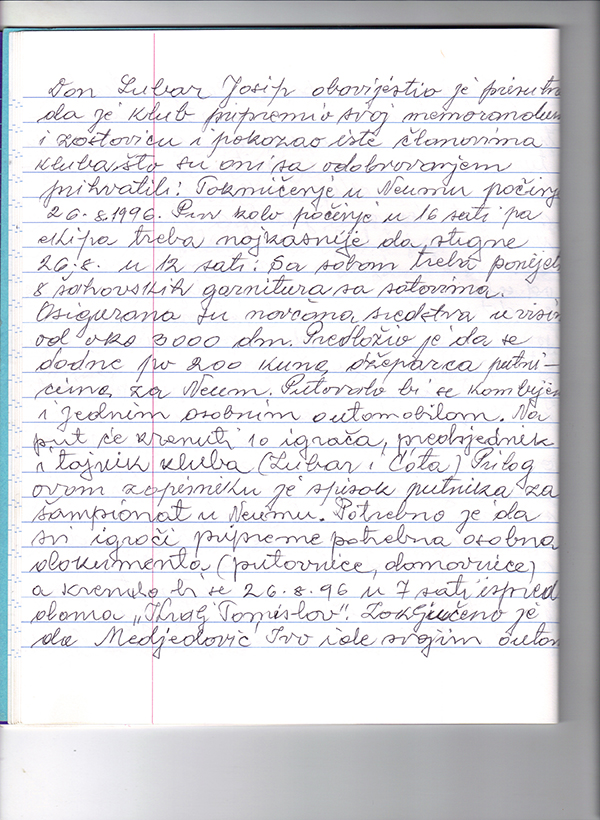 Don Lubar Josip obavijestio je prisutn
da je klub pripremio svoj memorandum
i zastavicu i pokazao iste članovima
kluba, što su oni sa odobravanjem
prihvatili! Takmičenje u Neumu počinje
26.8.1996. Prvo kolo počinje u 16 sati pa
ekipa treba najkasnije da stigne
26.8. u 12 sati! Sa sobom treba ponijet
8 šahovskih garnitura sa satovima.
Osigurana su novčana sredstva u visin
od oko 3000 dm. Predložio je da se
dodne po 200 kuna džeparca putni-
cima za Neum. Putovalo bi se kombijem
i jednim osobnim automobilom. Na
put će krenuti 10 igrača, predsjednik
i tajnik kluba (Lubar i Ćota) Prilog
ovom zapisniku je spisak putnika za
šampionat u Neumu. Potrebno je da
svi igrači pripreme potrebna osobna
dokumenta (putovnice, domovnice)
a krenulo bi se 26.8.96 u 7 sati ispred
doma "Kralj Tomislav". Zaključeno je
da Medjedović Ivo ide svojim autom